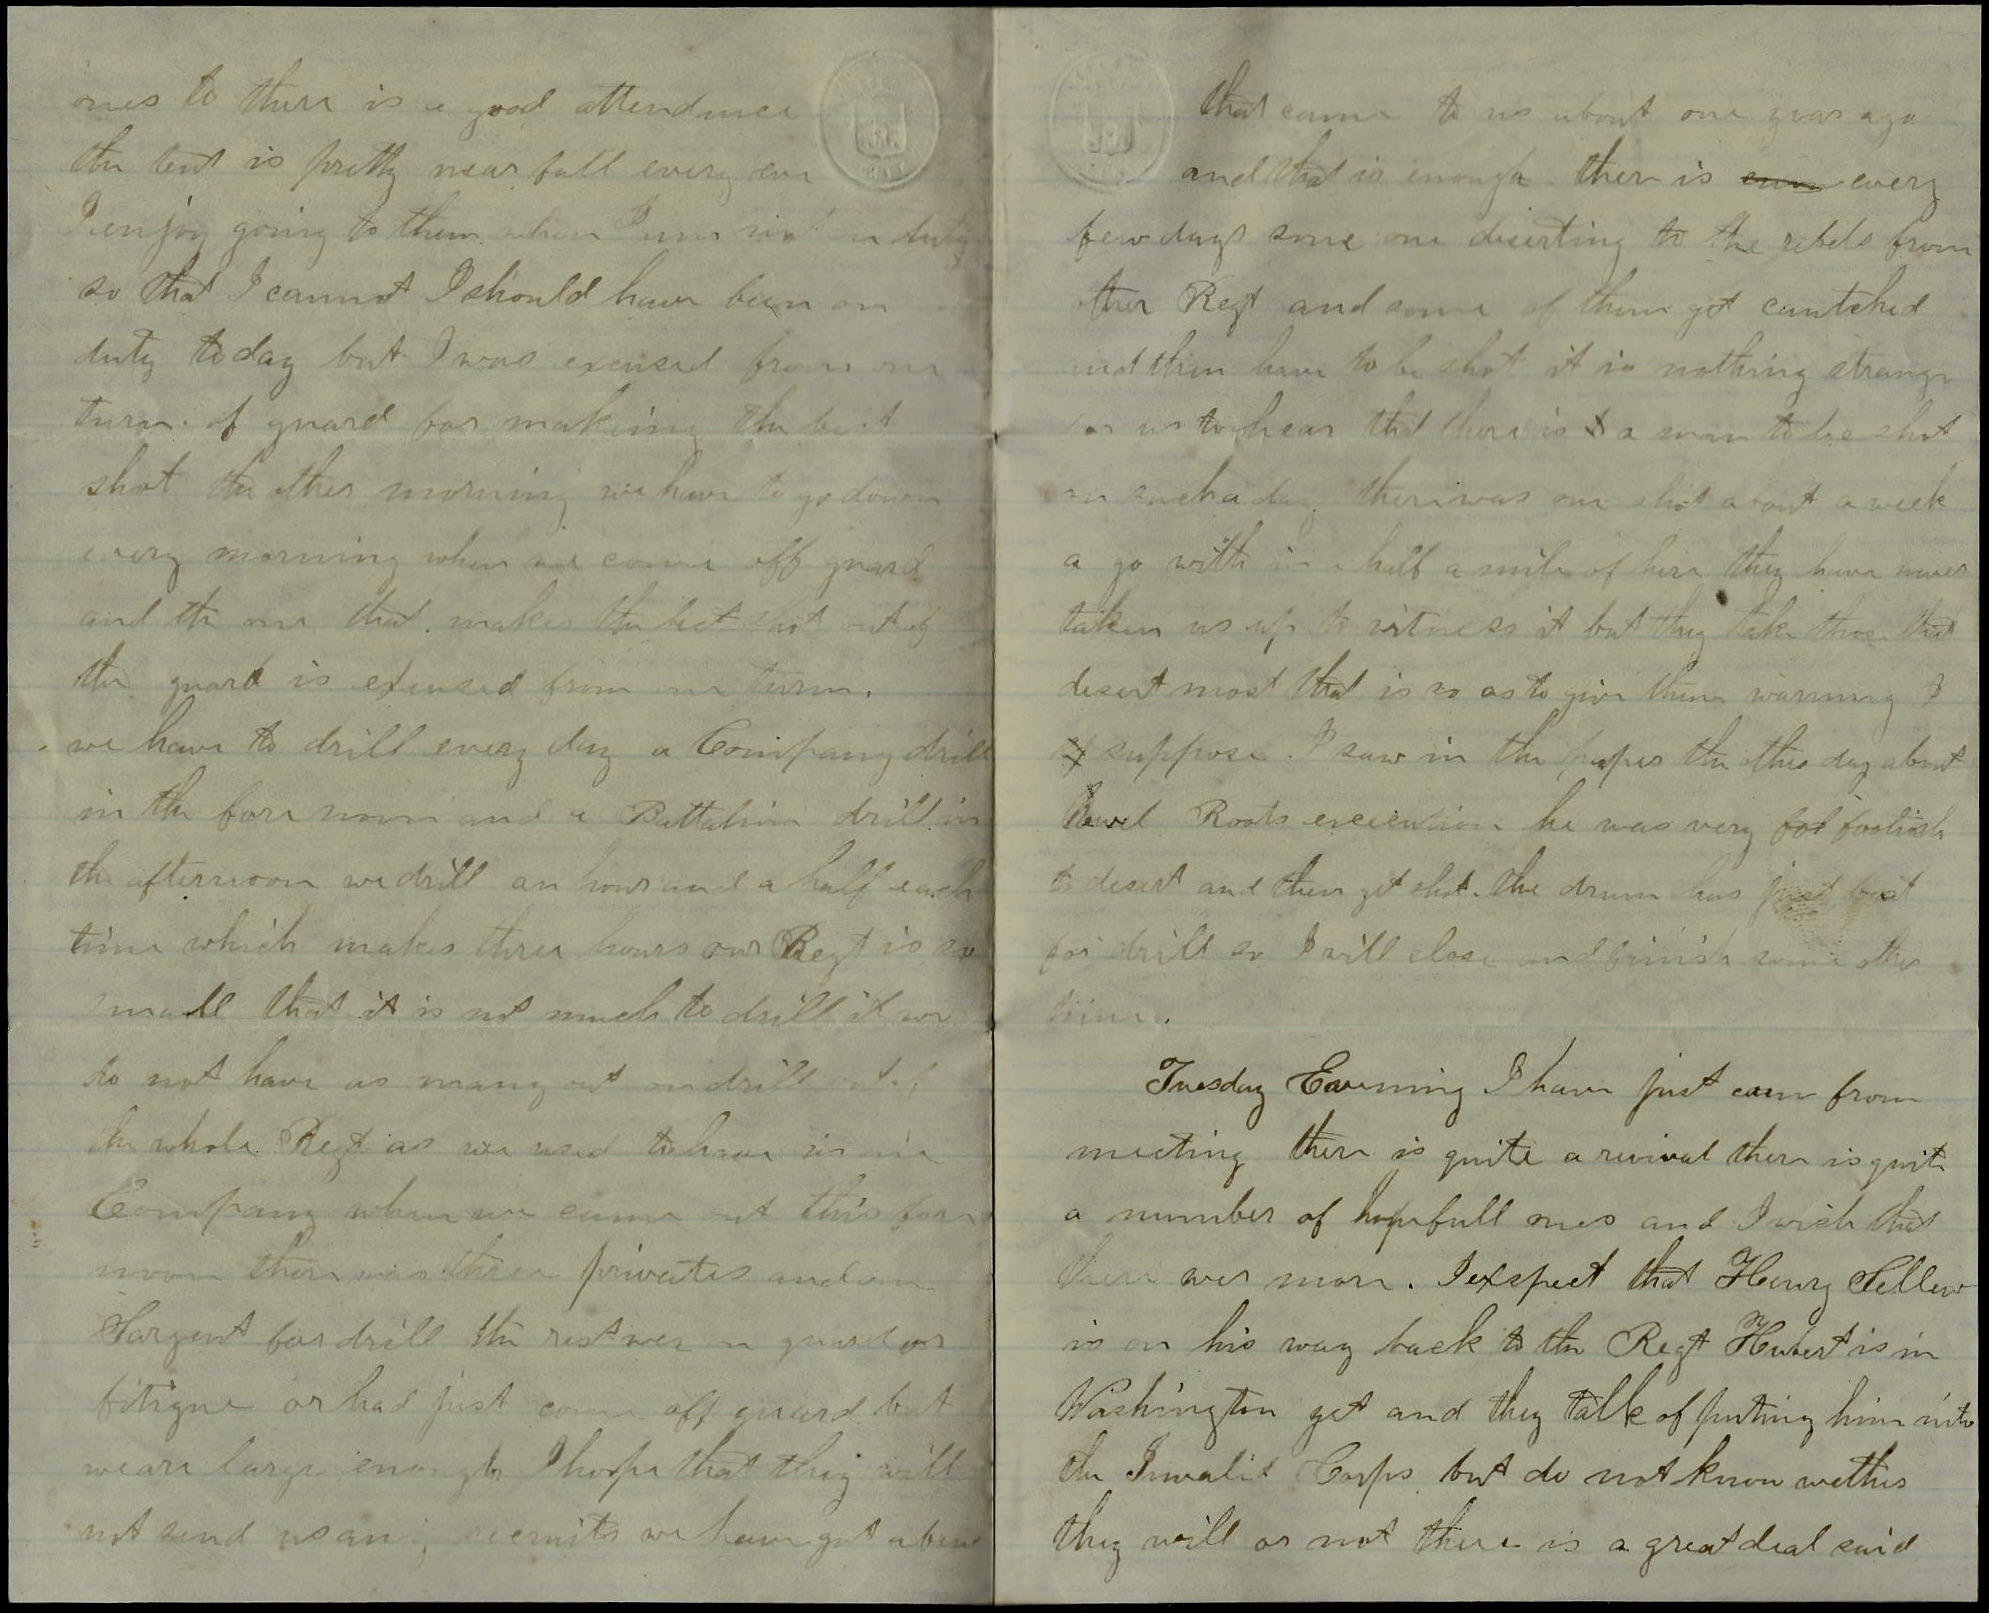 ones to there is a good attendance
the tent is pretty near full every eve
I enjoy going to them when I am not on duty
so that I cannot I should have been on
duty today but I was excused from one
turn of guard for making the best
shot the other morning we have to go down
every morning when we come off guard
and the one that makes the best shot out of
the guard is excused from one turn.
we have to drill every day a Company drill
in the fore noon and a Battalion drill in
the afternoon we drill an hour and a half each
time which makes three hours our Regt is so
small that it is not much to drill it we
do not have as many out on drill out of
the whole Regt as we used to have in one
Company when we came out this fore
noon there was three privates and one
Sargent for drill the rest wer on guard or
fitigue or had just come off guard but
we are large enough I hope that they will
not send us any recruits we have got a few
that came to us about one year ago
and that is enough there is every
few days some one deserting to the rebels from
other Regt and some of them get cautched
and then have to be shot it is nothing strange
for us to hear that there is a man to be shot
on such a day there was one shot about a week
a go with in a half a mile of here they have never
taken us up to witness it but they take those that
desert most that is so as to give them warning I
suppose I saw in the paper the other day about
Roots execution he was very foolish
to desert and then get shot. the drum has just beat
for drill so I will close and finish some other
time.
Tuesday Eavening I have just cam from
meeting there is quite a revival there is quite
a number of hopefull ones and I wish that
there wer more. I exspect that Henry Tellew
is on his way back to the Regt Hubert is in
Washington yet and they talk of puting him into
the Invalid Corps but do not know wether
they will or not there is a great deal said